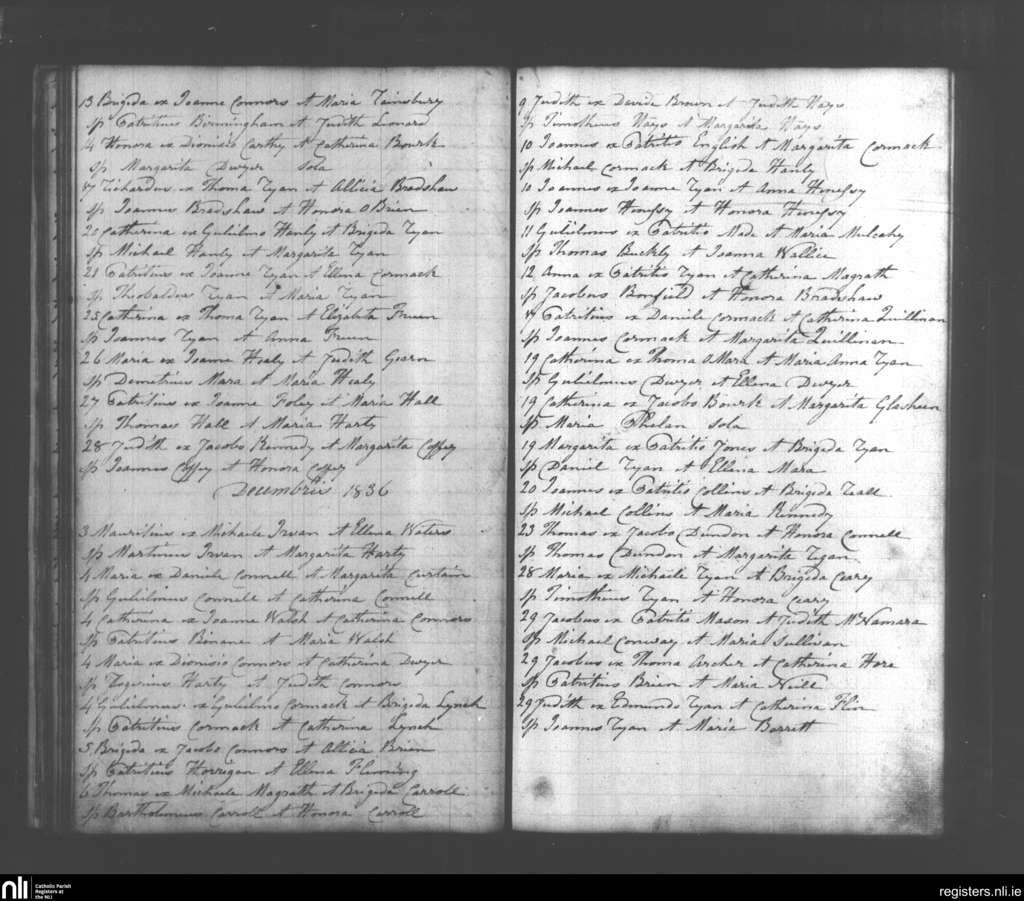 13 Brigida ex Joanne Connors et Maria Tainsbury
Sp Patritius Birmingham et Judith Leonard
4 Honora ex Dionisio Carthy et Catherina Bourk
Sp Margarita Dwyer Sola
17 Richardus ex Thoma Ryan et Allicia Bradshaw
Sp Joannes Bradshaw et Honora O Brien
20 Catherina ex Gulielmo Hanly et Brigida Ryan
Sp Michael Hanly et Margarita Ryan
21 Patritius ex Joanne Ryan et Ellena Cormack
Sp Theobaldus Ryan et Maria Ryan
25 Catherina ex Thoma Ryan et Elizabeta
Sp Joannes Ryan et Anna
26 Maria ex Joanne Healy et Judith
Sp Demetrius Mara et Maria Healy
27 Patritius ex Joanne Foley et Maria Hall
Sp Thomas Hall et Maria Harty
28 Judith ex Jacobo Kennedy et Margarita Coffey
Sp Joannes Coffey et Honora Coffey
Decembris 1836
3 Mauritius ex Michaele Irwan et Ellena Waters
Sp Martinus Irwan et Margarita Harty
4 Maria ex Daniele Connell et Margarita Curtain
Sp Gulielmus Connell et Catherina Connell
4 Catherina ex Joanne Walsh et Catherina Connors
Sp Patritius Binane et Maria Walsh
4 Maria ex Dionisio Connors et Catherina Dwyer
Sp Rogerius Harty et Judith Connors
4 Gulielmus ex Gulielmo Cormack et Brigida Lynch
Sp Patritius Cormack et Catherina Lynch
5 Brigida ex Jacobo Connors et Allicia Brien
Sp Patritius Horrigan et Ellena Fleming
6 Thomas ex Michaele Magrath et Brigida Carroll
Sp Bartholomeus Carroll et Honora Carroll
9 Judith ex Davide Brown et Judith Hays
Sp Timotheus Hays et Margarita Hays
10 Joannes ex Patritio English et Margarita Cormack
Sp Michael Cormack et Brigida Hanly
10 Joannes ex Joanne Ryan et Anna Henessy
Sp Joannes Henessy et Honora Henessy
11 Gulielmus ex Patritio Made et Maria Mulcahy
Sp Thomas Buckly et Joanna Wallice
12 Anna ex Patritio Ryan et Catherina Magrath
Sp Jacobus Bonfield et Honora Bradshaw
17 Patritius ex Daniele Cormack et Catherina Quillinan
Sp Joannes Cormack et Margarita Quillinan
19 Catherina ex Thoma O Mara et Maria Anna Ryan
Sp Gulielmus Dwyer et Ellena Dwyer
19 Catherina ex Jacobo Bourk et Margarita Glasheen
Sp Maria Phelan Sola
19 Margarita ex Patritio Jones et Brigida Ryan
Sp Daniel Ryan et Ellena Mara
20 Joannes ex Patritio Collins et Brigida
Sp Michael Collins et Maria Kennedy
23 Thomas ex Jacobo Dundon et Honora Connell
Sp Thomas Dundon et Margarita Ryan
28 Maria ex Michaele Ryan et Brigida Ceary
Sp Timotheus Ryan et Honora Ceary
29 Jacobus ex Patritio Mason et Judith McNamara
Sp Michael Conway et Maria Sullivan
29 Jacobus ex Thoma Archer et Catherina Hore
Sp Patritius Brien et Maria Neill
29 Judith ex Edmundo Ryan et Catherina Flin
Sp Joannes Ryan et Maria Barrett
nli Catholic Parish
Registers at
the NLI
registers.nli.ie